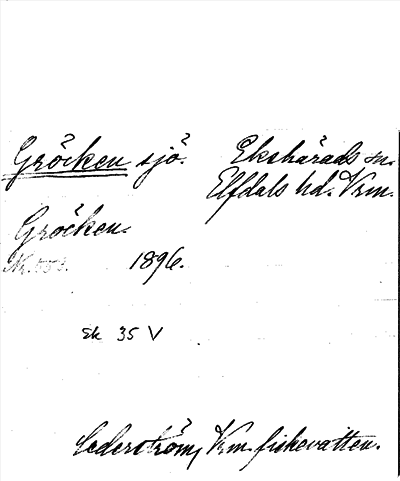 Gröcken sjö.
Ekshärads sn.
Elfdals hd. Vrm.
Gröcken.
1896.
Ek 35 V
Cederström, Vrm. fiskevatten.